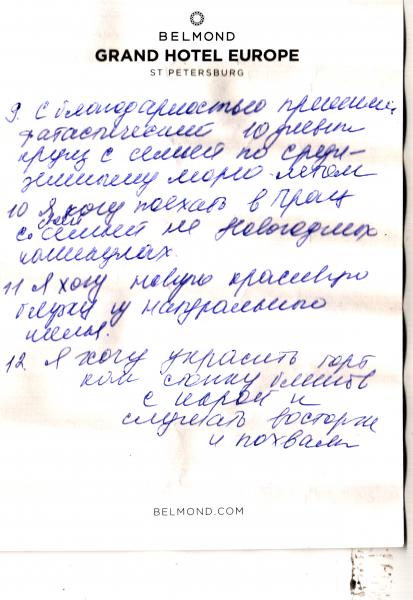 BELMOND
GRAND HOTEL EUROPE
ST PETERSBURG
9. С благодарностью приним
фатастический 10 дневн
круиз с семьёй по среди-
земному морю летом
10 Я хочу поехать в
со всей семьёй на Новогодних
каникулах.
11 Я хочу новую красивую
блузку из натурального
шелка.
12. Я хочу украсить торт
как стопку блинов
с икрой и
слушать восторжен
и похвалы
BELMOND.COM